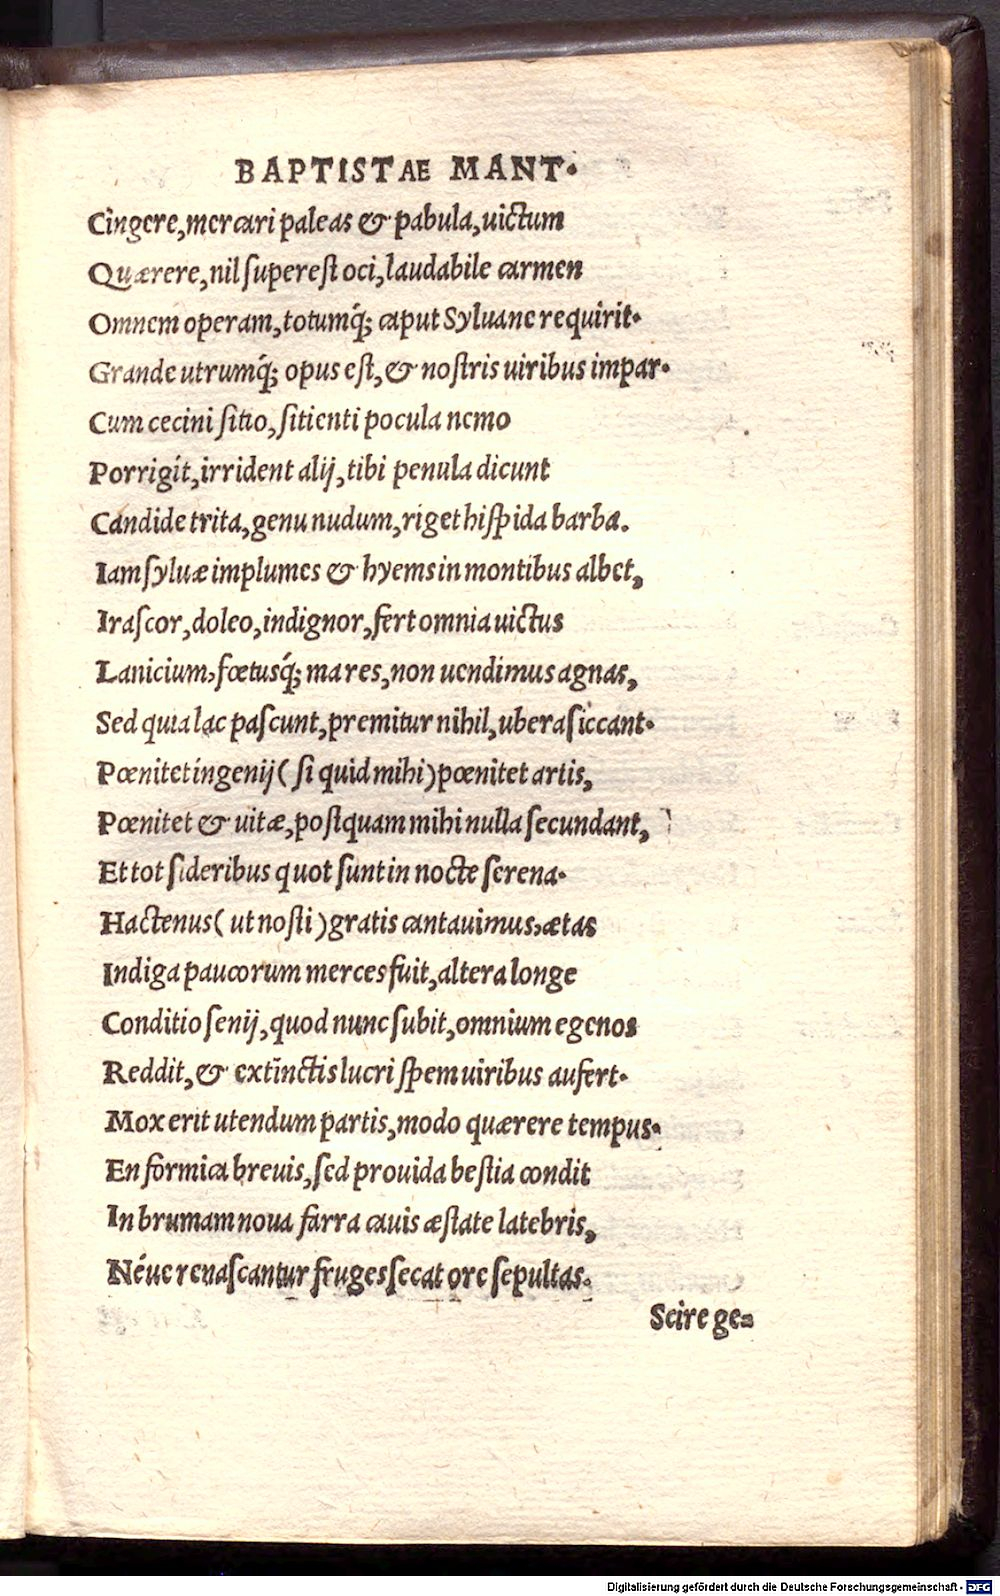 BAPTISTAE MANT.
Cingere, mercari paleas & pabula, uictum
Quærere, nil superest oci, laudabile carmen
Omnem operam, totumq́; caput Syluane requirit.
Grande utrumq́; opus est, & nostris uiribus impar.
Cum cecini sitio, sitienti pocula nemo
Porrigit, irrident alij, tibi penula dicunt
Candide trita, genu nudum, riget hispida barba.
Iam syluæ implumes & hyems in montibus albet,
Irascor, doleo, indignor, fert omnia uictus
Lanicium, fœtusq́; mares, non uendimus agnas,
Sed quia lac pascunt, premitur nihil, ubera siccant.
Pœnitet ingenij ( si quid mihi ) pœnitet artis,
Pœnitet & uitæ, postquam mihi nulla secundant,
Et tot sideribus quot sunt in nocte serena.
Hactenus ( ut nosti ) gratis cantauimus, ætas
Indiga paucorum merces fuit, altera longe
Conditio senij, quod nunc subit, omnium egenos
Reddit, & extinctis lucri spem uiribus aufert.
Mox erit utendum partis, modo quærere tempus.
En formica breuis, sed prouida bestia condit
In brumam noua farra cauis æstate latebris,
Néue renascantur fruges secat ore sepultas.
Scire ge=
Digitalisierung gefördert durch die Deutsche Forschungsgemeinschaft - DFG